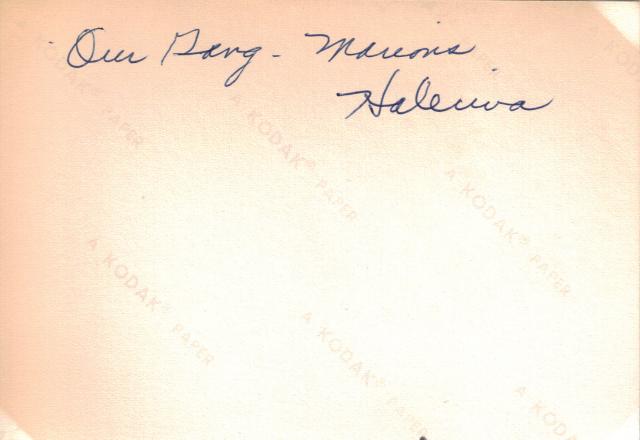 Our Gang - Marions
Haleiwa
A KODAK® PAPER
A KODAK® PAPER
A KODAK® PAPER
A KODAK® PAPER
A KODAK® PAPER
A KODAK